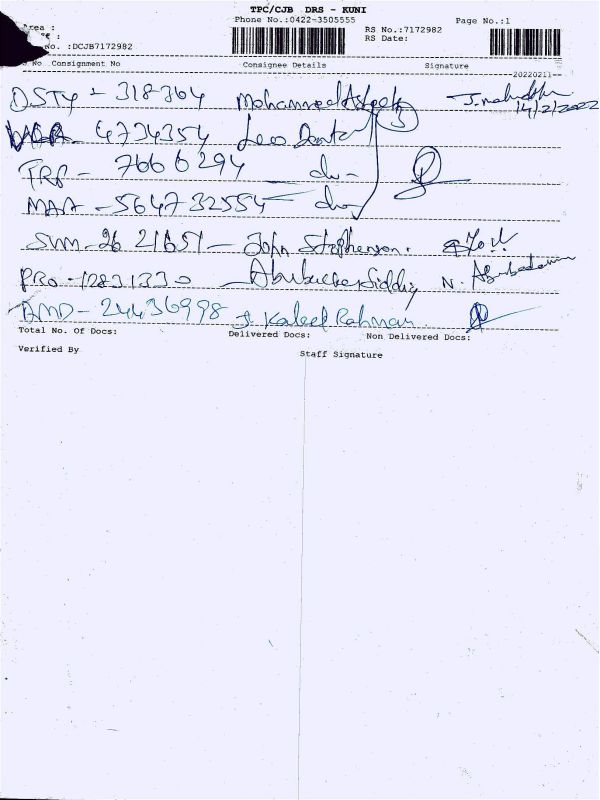 TPC/CJB DRS - KUNI
Phone No.:0422-3505555
Page No.:1
Area :
RS No.:7172982
RS Date:
No. :DCJB7172982
No Consignment No Consignee Details Signature
20220211
318364 Mohammed 14/2/2022
4734354 Leo
TRP - 7666294 - do -
MAA - 564732554 - do
SUM - 2621651 - John Stephenson.
PRO - 1283133 0 - Abubucker Siddiq N.
AMD - 24436998 Kaleel Rahman.
Total No. Of Docs: Delivered Docs: Non Delivered Docs:
Verified By
Staff Signature